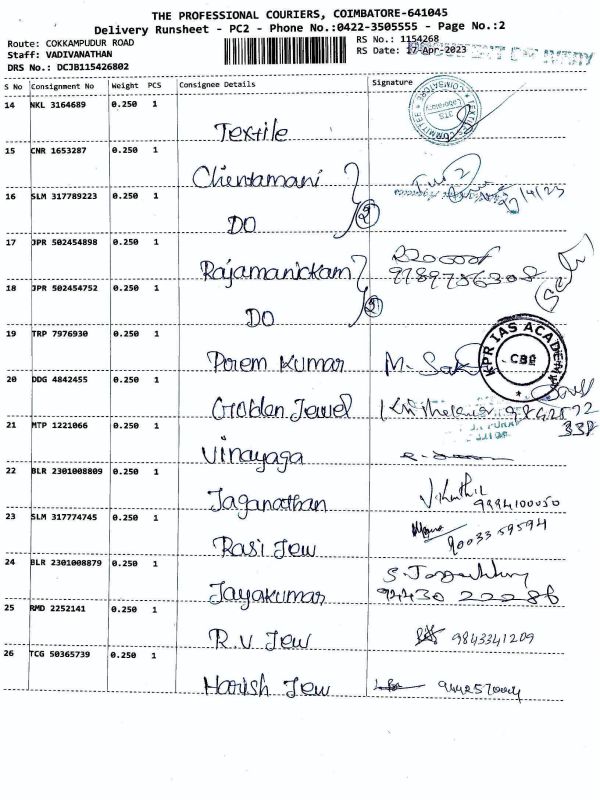 THE PROFESSIONAL COURIERS, COIMBATORE-641045
Delivery Runsheet - PC2 - Phone No.:0422-3505555 - Page No.:2
Route: COKKAMPUDUR ROAD
RS No.: 1154268
Staff: VADIVANATHAN
RS Date: 17-Apr-2023
DRS No.: DCJB115426802
S No Consignment No Weight PCS Consignee Details Signature
14 NKL 3164689 0.250 1
TEXTILES COMMITTEE COIMBATORE
Laboratory
Textile
15 CNR 1653287 0.250 1
Chentamani
16 SLM 317789223 0.250 1
DO
2
17 JPR 502454898 0.250 1
Rajamanickam
9789756308
18 JPR 502454752 0.250 1
DO
2
19 TRP 7976930 0.250 1
KPR IAS ACADEMY
CBE
Prem Kumar
20 DDG 4842455 0.250 1
Golden Jewel
9842572
338
21 MTP 1221066 0.250 1
Vinayaga
22 BLR 2301008809 0.250 1
Jaganathan
9994100050
23 SLM 317774745 0.250 1
Rasi Jew
9003359594
24 BLR 2301008879 0.250 1
Jayakumar
94430 22286
25 RMD 2252141 0.250 1
R.V Jew
9843341209
26 TCG 50365739 0.250 1
Harish Jew